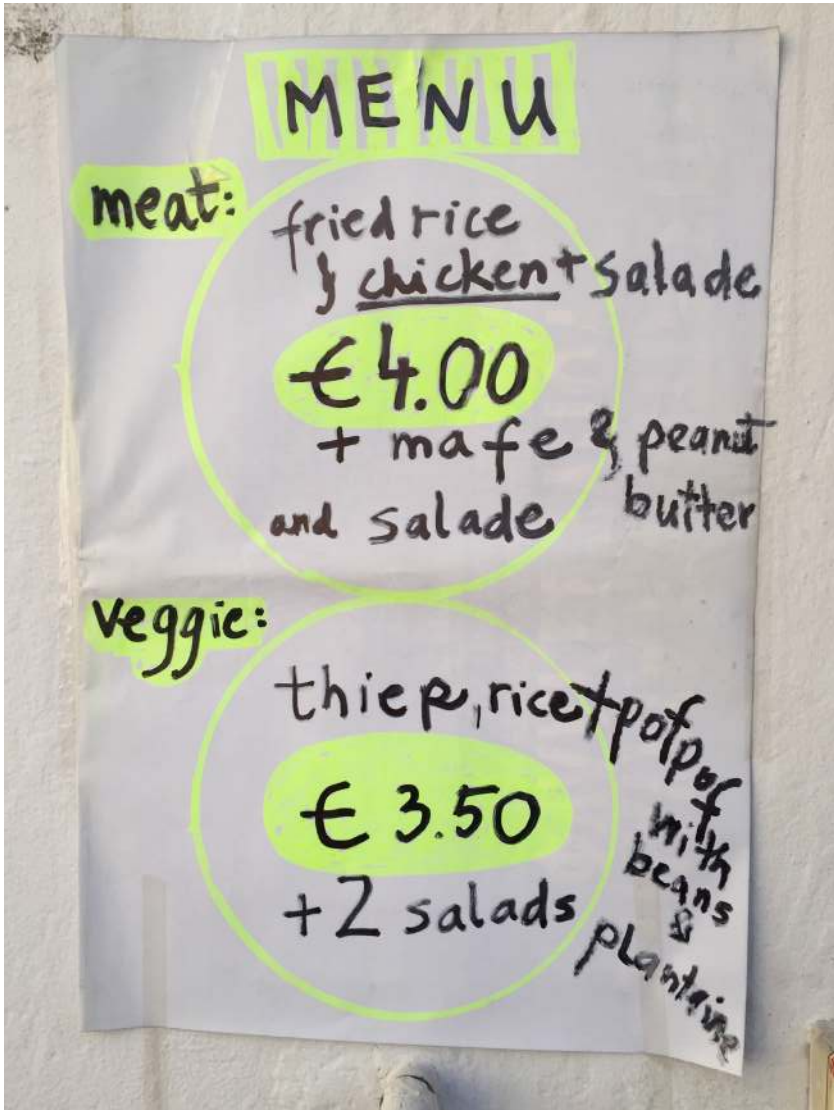 MENU
meat:
fried rice
& chicken + salade
€4.00
+ mafe & peanut
butter
and salade
veggie:
thiep, rice + pofpof
with
beans
&
plantaine
€3.50
+2 salads